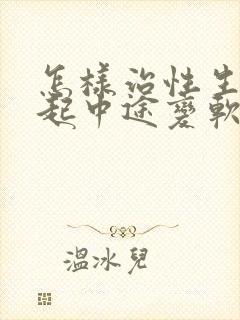 怎樣治性生
起中途變軟
溫冰兒